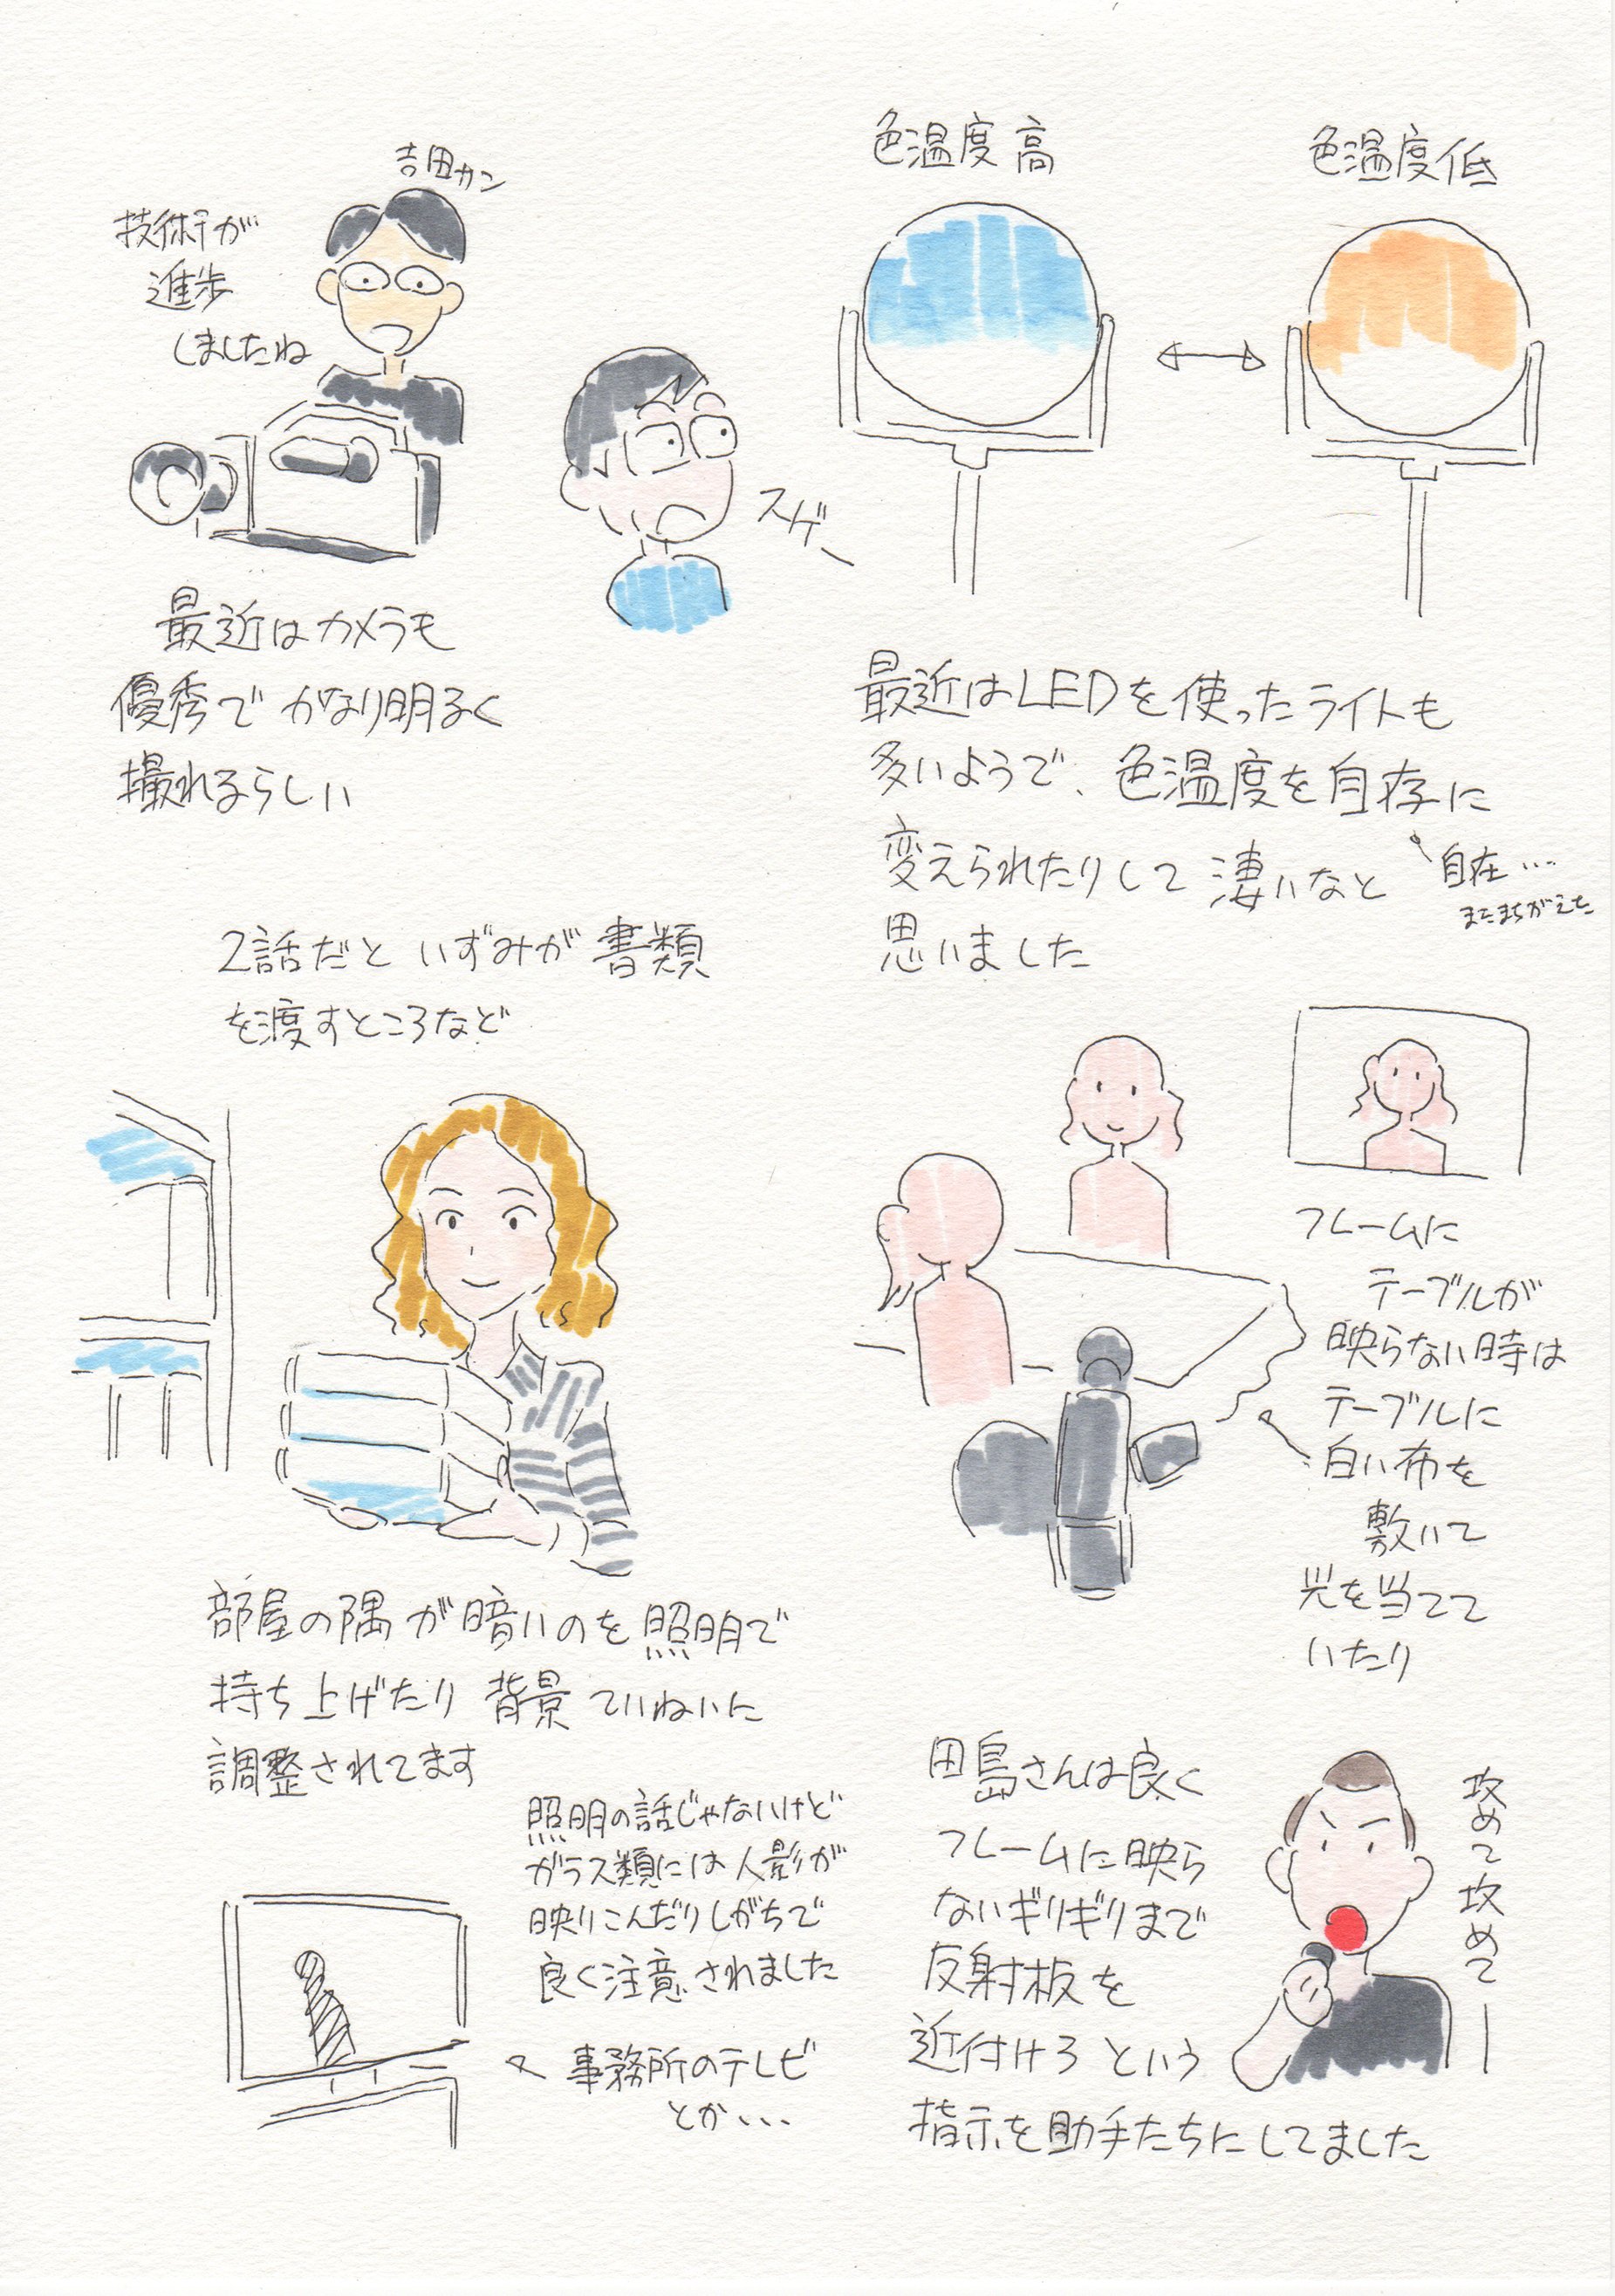 吉田カン
技術が
進歩
しましたね
スゲー
最近はカメラも
優秀で かなり明るく
撮れるらしい
色温度 高
色温度低
最近はLEDを使ったライトも
多いようで、色温度を自存に
変えられたりして 凄いなと
思いました
自在…
またまちがえた
2話だと いずみが 書類
を渡すところなど
部屋の隅が暗いのを照明で
持ち上げたり 背景 ていねいに
調整されてます
フレームに
テーブルが
映らない時は
テーブルに
白い布を
敷いて
光を当てて
いたり
照明の話じゃないけど
ガラス類には人影が
映りこんだりしがちで
良く注意されました
事務所のテレビ
とか...
田島さんは良く
フレームに映ら
ないギリギリまで
反射板を
近付けろ という
指示を助手たちにしてました
攻めて攻めてー